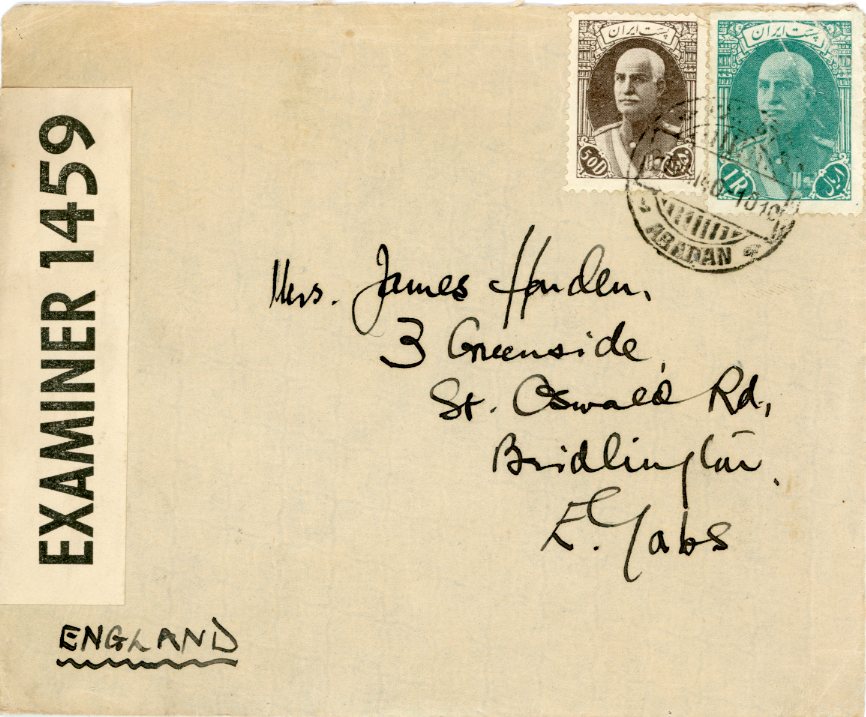 EXAMINER 1459
پست ایران
50D
پست ایران
1R
ABADAN
Mrs. James Harden,
3 Greenside,
St. Oswald Rd,
Bridlington,
E. Yorks
ENGLAND